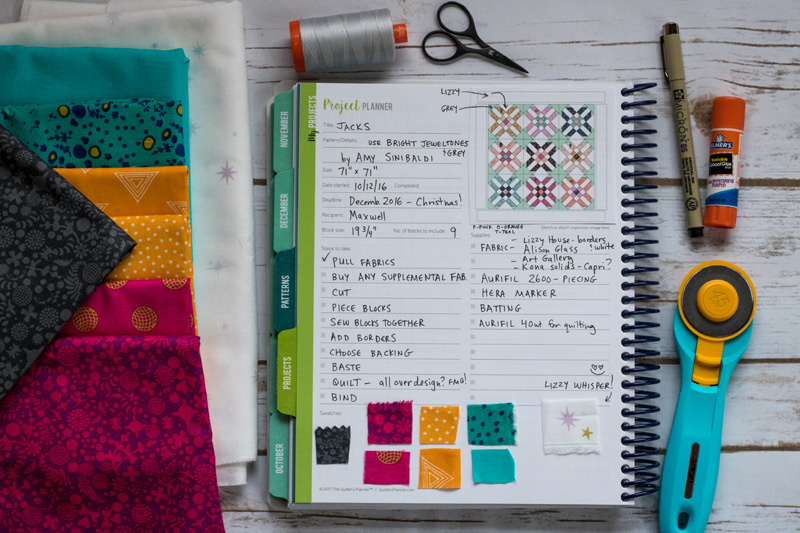 NOVEMBER
DECEMBER
PATTERNS
PROJECTS
OCTOBER
My PROJECTS
Project PLANNER
Title: JACKS
Pattern/Details: USE BRIGHT JEWELTONES
& GREY
by AMY SINIBALDI
Size: 71" x 71"
Date started: 10/12/16 Completed:
Deadline: Decemb 2016 - Christmas!
Recipient: Maxwell
Block size: 19 3/4" No. of blocks to include: 9
Steps to take:
✓ PULL FABRICS
BUY ANY SUPPLEMENTAL FAB.
CUT
PIECE BLOCKS
SEW BLOCKS TOGETHER
ADD BORDERS
CHOOSE BACKING
BASTE
QUILT - all over design? FMQ!
BIND
Swatches:
© 2017 The Quilter's Planner™ | QuiltersPlanner.com
LIZZY
GREY
P-PINK O-ORANGE
T-TEAL
Sketch or attach inspiration image here
Supplies:
FABRIC - - Lizzy House - borders
- Alison Glass & white
- Art Gallery
- Kona solids - Capri?
AURIFIL 2600 - PIECING
HERA MARKER
BATTING
AURIFIL 40wt for quilting
LIZZY WHISPER!
MICRON 05
ELMER'S
Washable
School Glue